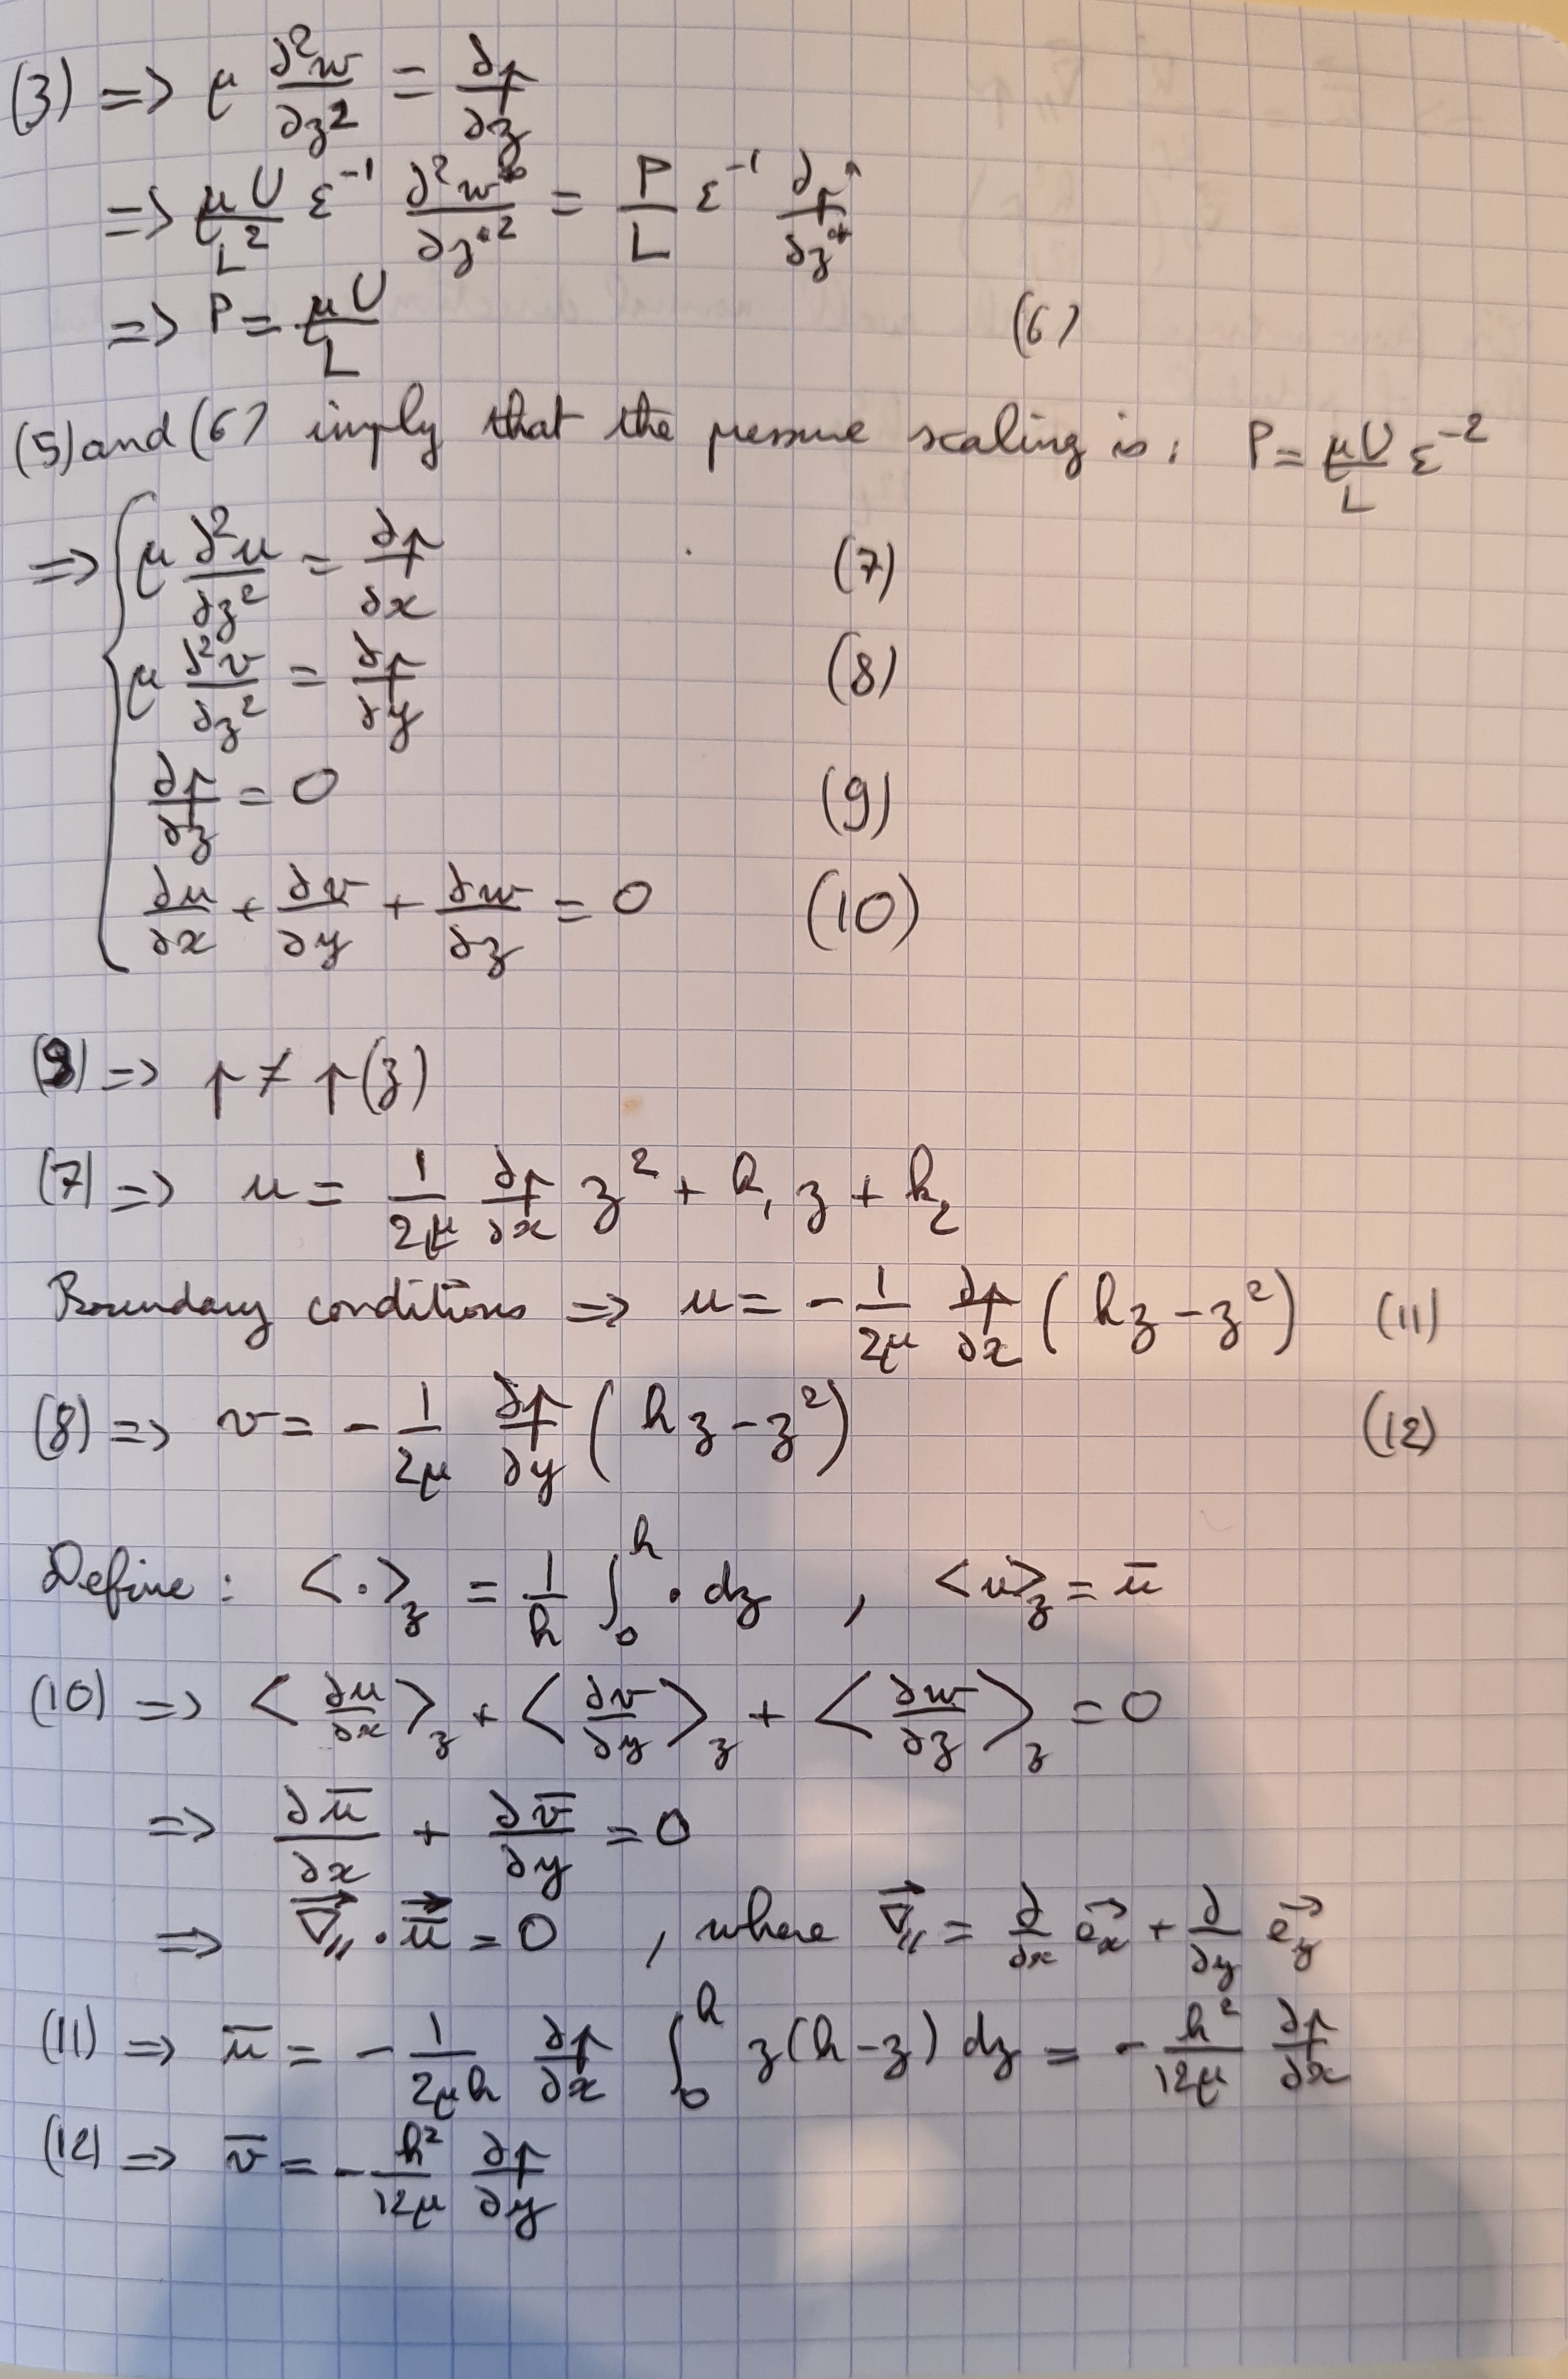 (3) => μ ∂²w/∂z² = ∂p/∂z
=> μU/L² ε⁻¹ ∂²w*/∂z*² = P/L ε⁻¹ ∂p*/∂z*
=> P = μU/L (6)
(5) and (6) imply that the pressure scaling is: P = μU/L ε⁻²
=> { μ ∂²u/∂z² = ∂p/∂x (7)
μ ∂²v/∂z² = ∂p/∂y (8)
∂p/∂z = 0 (9)
∂u/∂x + ∂v/∂y + ∂w/∂z = 0 (10)
(9) => p ≠ p(z)
(7) => u = 1/2μ ∂p/∂x z² + k₁ z + k₂
Boundary conditions => u = - 1/2μ ∂p/∂x (hz - z²) (11)
(8) => v = - 1/2μ ∂p/∂y (hz - z²) (12)
Define: <·>_z = 1/h ∫₀ʰ · dz , <u>_z = ū
(10) => <∂u/∂x>_z + <∂v/∂y>_z + <∂w/∂z>_z = 0
=> ∂ū/∂x + ∂v̄/∂y = 0
=> ∇⃗_// · ū⃗ = 0 , where ∇⃗_// = ∂/∂x e⃗_x + ∂/∂y e⃗_y
(11) => ū = - 1/2μh ∂p/∂x ∫₀ʰ z(h-z) dz = - h²/12μ ∂p/∂x
(12) => v̄ = - h²/12μ ∂p/∂y